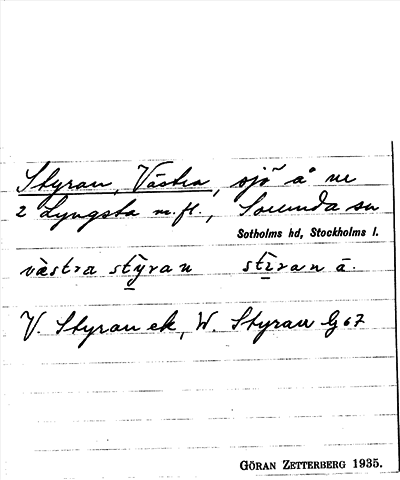 Styran, Västra, sjö å nr
2 Lyngsta m.fl., Sorunda sn
Sotholms hd, Stockholms l.
västra styran stiran ä.
V. Styran ek, W. Styran G 67
GÖRAN ZETTERBERG 1935.